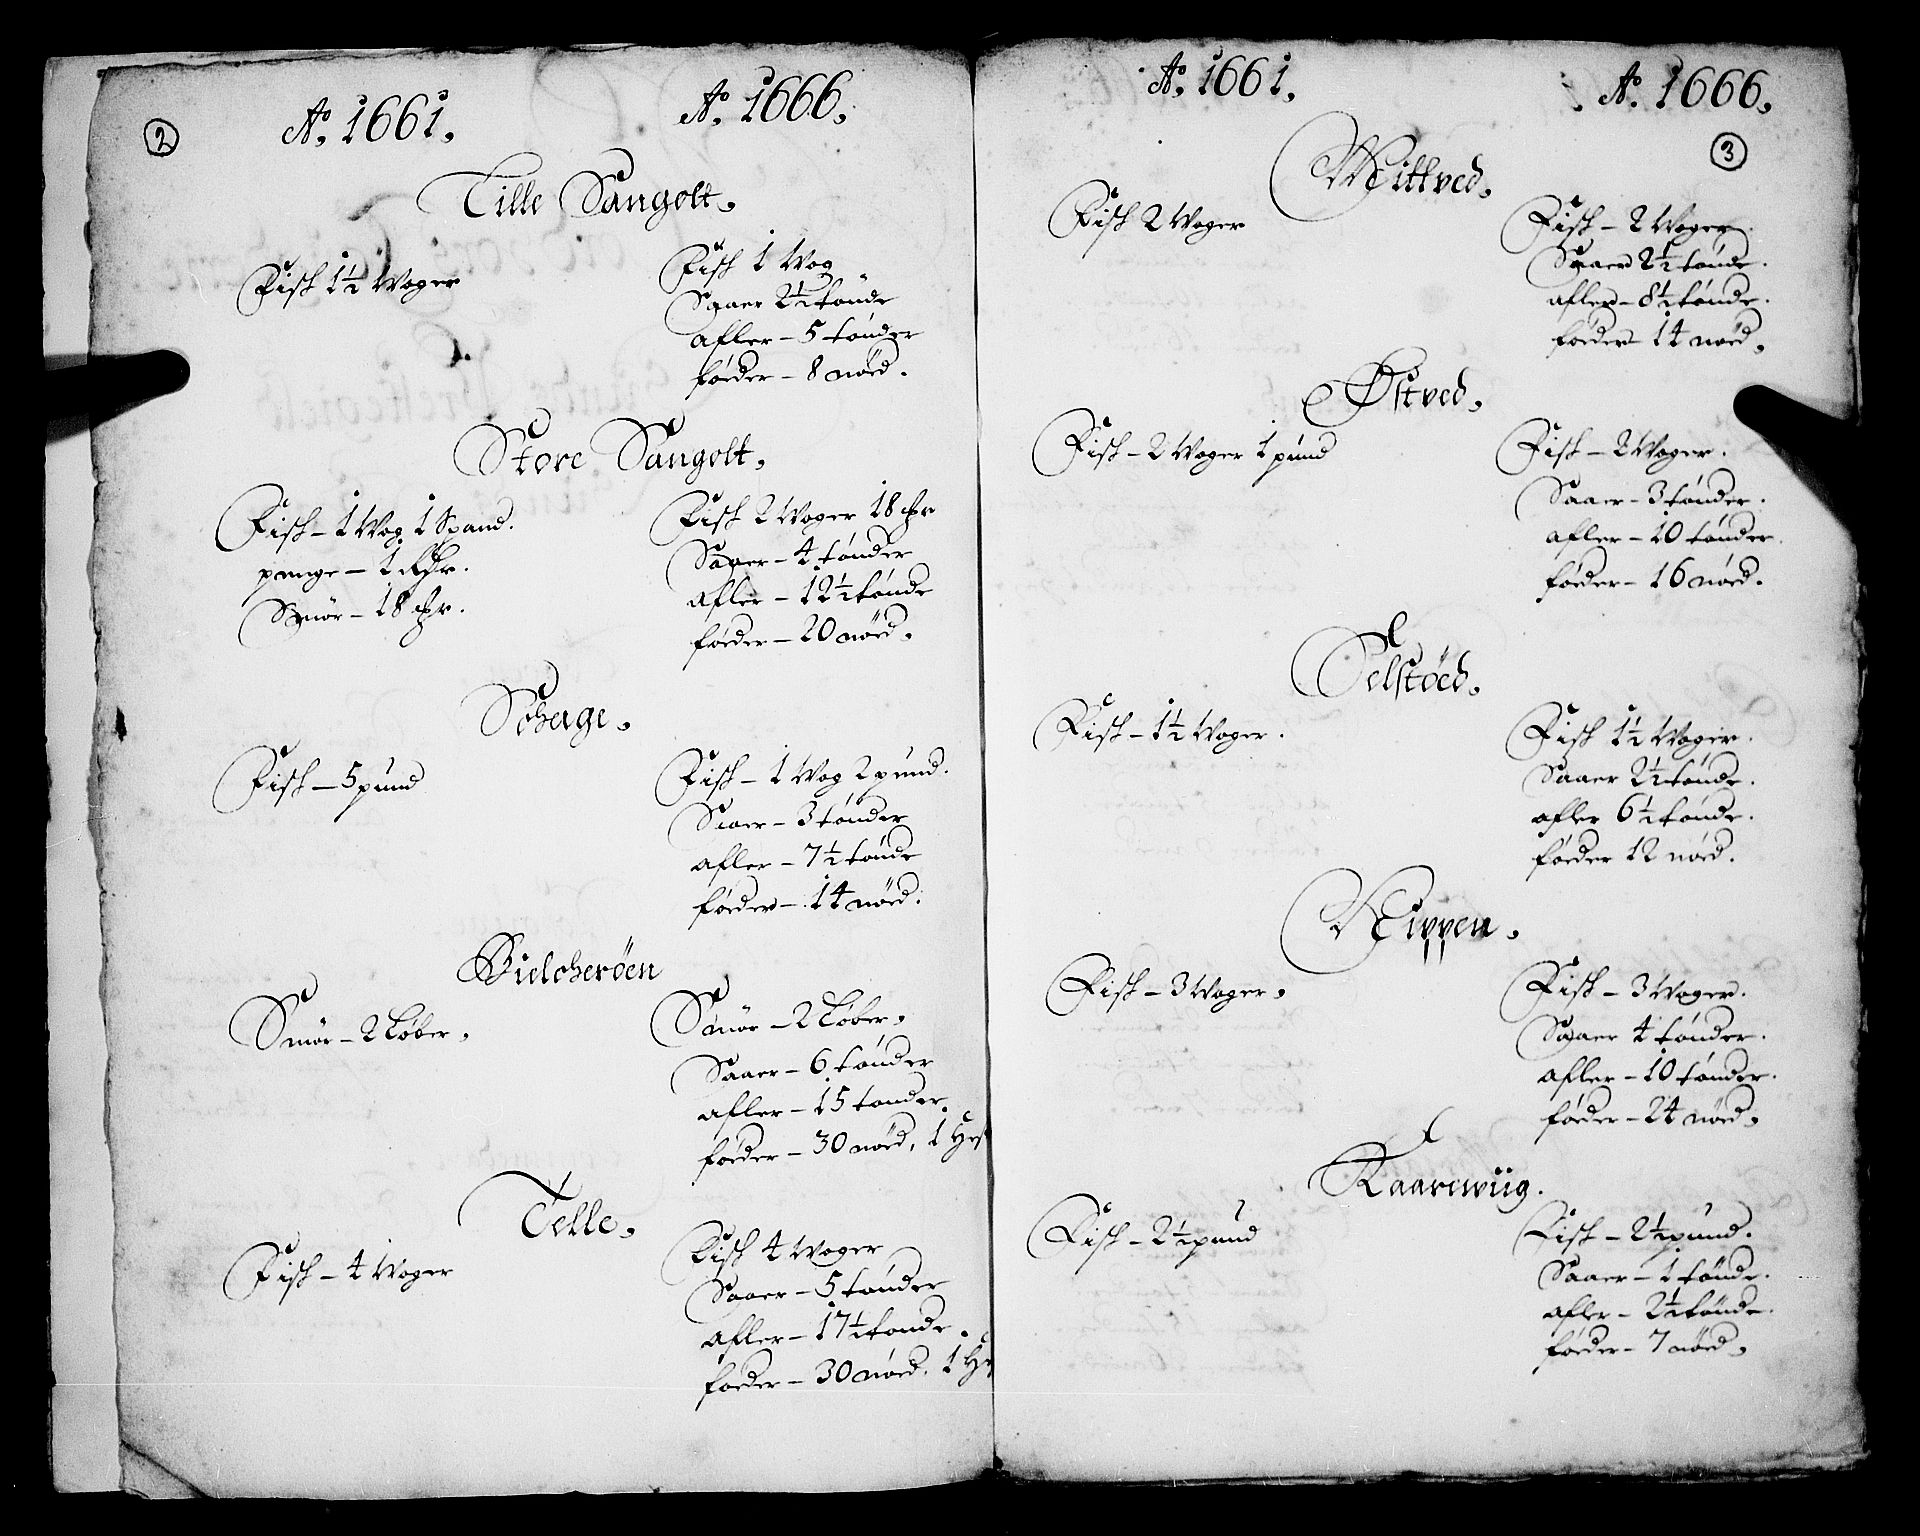 2
Ao. 1661.
Ao. 1666.
Tille Sangolt.
Fisk 1½ Woger
Fisk 1 Wog
Saaer 2½ tønde
afler – 5 tønder
føeder – 8 nöed.
Store Sangolt.
Fisk – 1 Wog 1 Spand.
penge – 1 Rdr.
Smör – 18 mkr.
Fisk 2 Woger 18 mkr
Saaer – 4 tønder
afler – 12½ tønde
føeder – 20 nöed.
Fisk – 5 pund
Fisk – 1 Wog 2 pund.
Saaer – 3 tønder
afler – 7½ tønde
føeder – 14 nöed.
Gielcheröen
Smör – 2 Løber.
Smör – 2 Løber.
Saaer – 6 tønder
afler – 15 tønder.
føeder – 30 nöed, 1 Hest
Telle.
Fisk – 4 Woger
Fisk 4 Woger
Saaer – 5 tønder
afler – 17½ tønde.
føeder – 30 nöed. 1 He
3
Ao. 1661.
Ao. 1666.
Mittved.
Fisk 2 Woger
Fisk – 2 Woger.
Saaer 2½ tønde.
afler – 8½ tønde.
føeder 14 nöed.
Østved.
Fisk – 2 Woger 1 pund
Fisk – 2 Woger.
Saaer – 3 tønder.
afler – 10 tønder.
føeder – 16 nöed.
Selstöed.
Fisk – 1½ Woger.
Fisk 1½ Woger.
Saaer 2½ tønde.
afler 6½ tønde.
føeder 12 nöed.
Nippen.
Fisk – 3 Woger.
Fisk – 3 Woger.
Saaer 4 tønder.
afler – 10 tønder.
føeder – 24 nöed.
Kaarewiig.
Fisk – 2½ pund
Fisk – 2½ pund.
Saaer – 1 tønde.
afler – 2½ tønde.
føeder – 7 nöed.